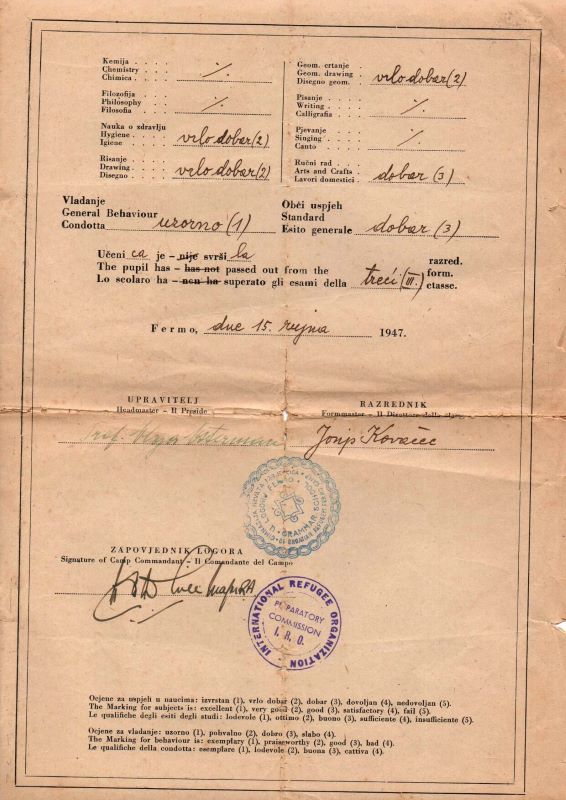 Kemija . . . .
Chemistry . . . .
Chimica . . . . ·/·
Geom. crtanje .
Geom. drawing .
Disegno geom. . vrlo dobar (2)
Filozofija . . . .
Philosophy . . . .
Filosofia . . . . ·/·
Pisanje . . . .
Writing . . . .
Calligrafia . . ·/·
Nauka o zdravlju
Hygiene . . . .
Igiene . . . . vrlo dobar (2)
Pjevanje . . . .
Singing . . . .
Canto . . . . ·/·
Risanje . . . .
Drawing . . . .
Disegno . . . . vrlo dobar (2)
Ručni rad . . .
Arts and Crafts .
Lavori domestici . dobar (3)
Vladanje
General Behaviour
Condotta uzorno (1)
Obći uspjeh
Standard
Esito generale dobar (3)
Učeni ca je – nije svrši la razred.
The pupil has – has not passed out from the treći (III.) form.
Lo scolaro ha – non ha superato gli esami della classe.
Fermo, dne 15. rujna 1947.
UPRAVITELJ
Headmaster – Il Preside
RAZREDNIK
Formmaster – Il Direttore della classe
Prof.
Josip Kovačec
GRAMMAR SCHOOL
ZAPOVJEDNIK LOGORA
Signature of Camp Commandant – Il Comandante del Campo
INTERNATIONAL REFUGEE ORGANIZATION
PREPARATORY
COMMISSION
I. R. O.
Ocjene za uspjeh u naucima: izvrstan (1), vrlo dobar (2), dobar (3), dovoljan (4), nedovoljan (5).
The Marking for subjects is: excellent (1), very good (2), good (3), satisfactory (4), fail (5).
Le qualifiche degli esiti degli studi: lodevole (1), ottimo (2), buono (3), sufficiente (4), insufficiente (5).
Ocjene za vladanje: uzorno (1), pohvalno (2), dobro (3), slabo (4).
The Marking for behaviour is: exemplary (1), praiseworthy (2), good (3), bad (4).
Le qualifiche della condotta: esemplare (1), lodevole (2), buona (3), cattiva (4).